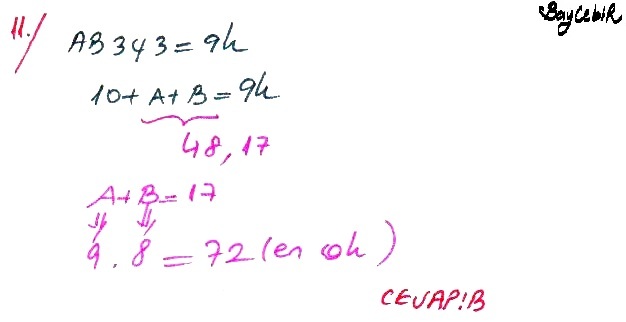 BayCebir
11.) AB343 = 9k
10 + A + B = 9k
48, 17
A + B = 17
9 . 8 = 72 (en çok)
CEVAP: B